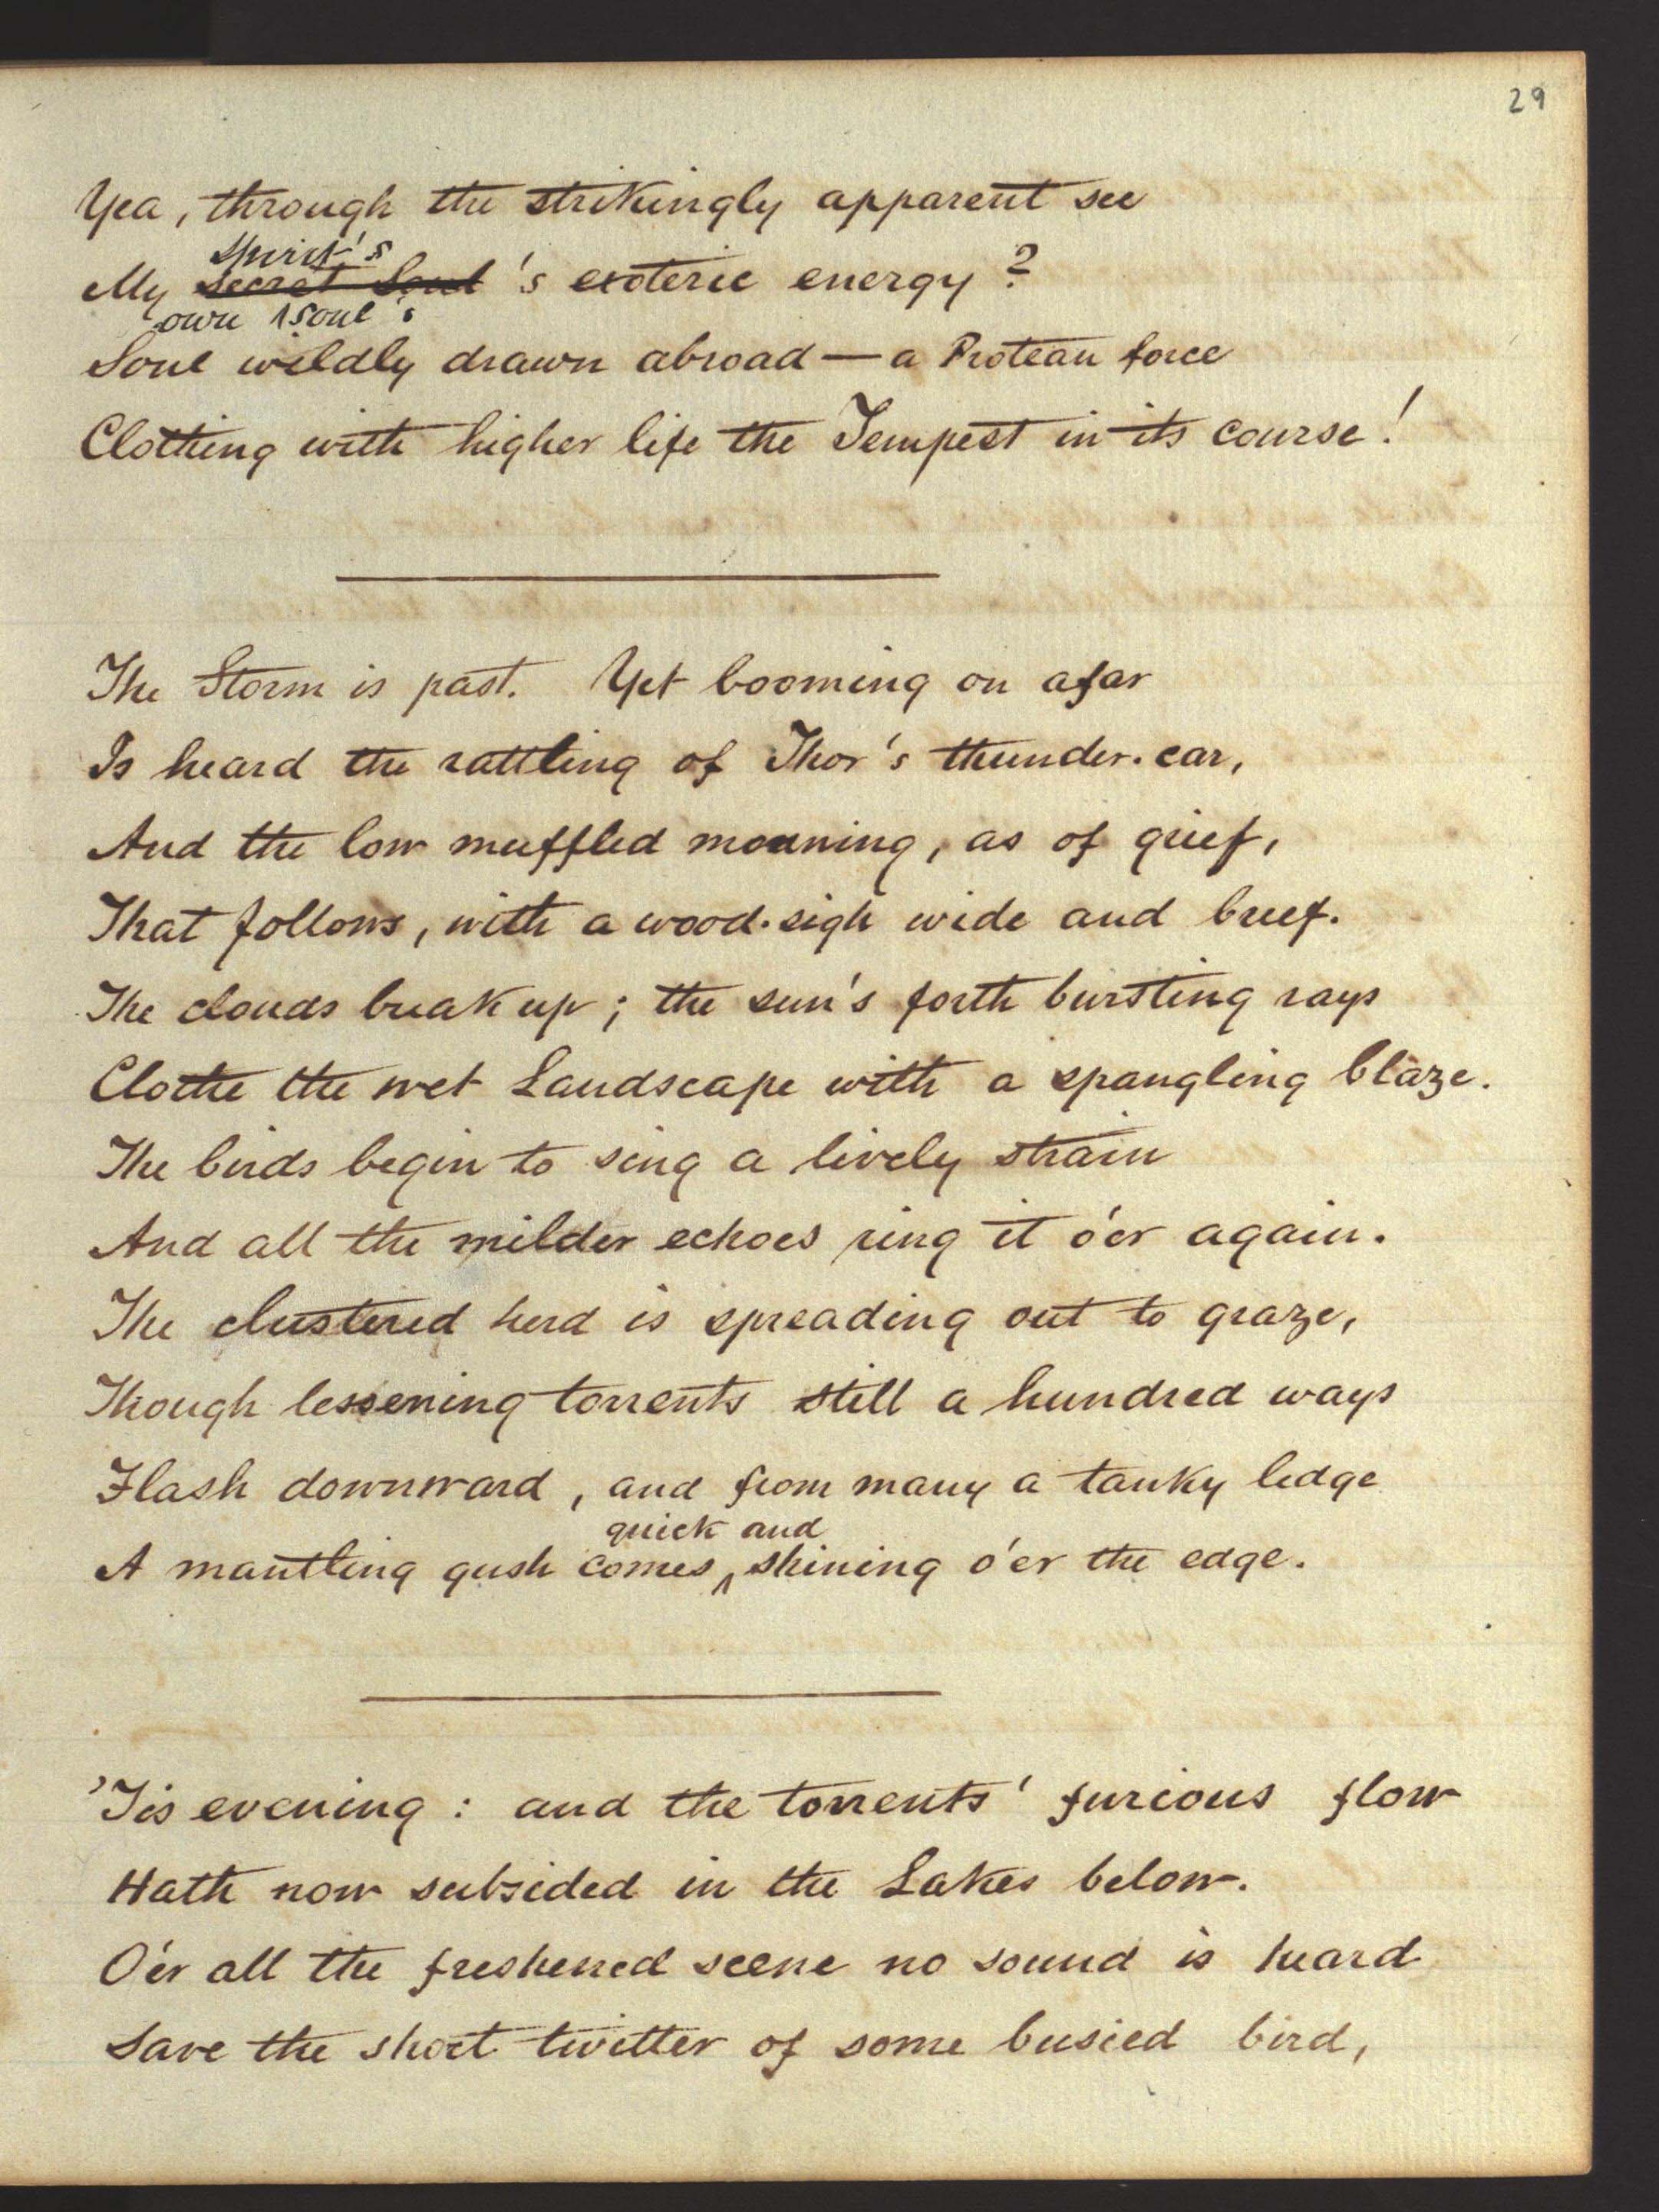 29
Yea, through the strikingly apparent see
spirit's
My secret Soul's exoteric energy?
own soul
Soul wildly drawn abroad — a Protean force
Clothing with higher life the Tempest in its course!
The Storm is past. Yet booming on afar
Is heard the rattling of Thor's thunder-car,
And the low muffled moaning, as of grief,
That follows, with a wood-sigh wide and brief.
The clouds break up; the sun's forth bursting rays
Clothe the wet Landscape with a spangling blaze.
The birds begin to sing a lively strain
And all the milder echoes ring it o'er again.
The clustered herd is spreading out to graze,
Though lessening torrents still a hundred ways
Flash downward, and from many a tanky ledge
quick and
A mantling gush comes, ^ shining o'er the edge.
'Tis evening: and the torrents' furious flow
Hath now subsided in the Lakes below.
O'er all the freshened scene no sound is heard
Save the short twitter of some busied bird,